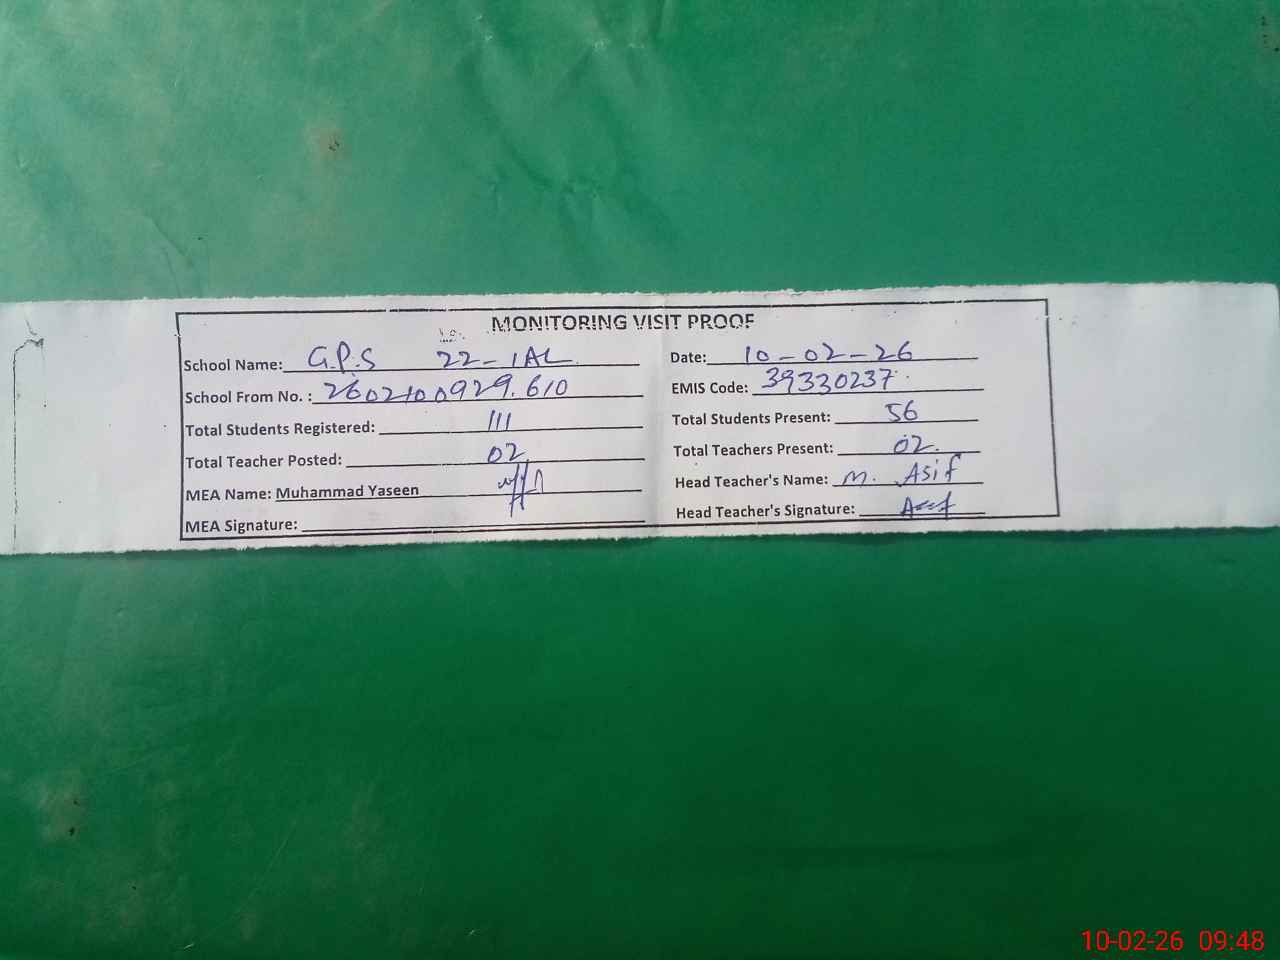 MONITORING VISIT PROOF
School Name: G.P.S 22-1AL
Date: 10-02-26
School From No. : 2602100929.610
EMIS Code: 39330237
Total Students Registered: 111
Total Students Present: 56
Total Teacher Posted: 02
Total Teachers Present: 02
MEA Name: Muhammad Yaseen
Head Teacher's Name: M. Asif
MEA Signature:
Head Teacher's Signature: Asif
10-02-26 09:48